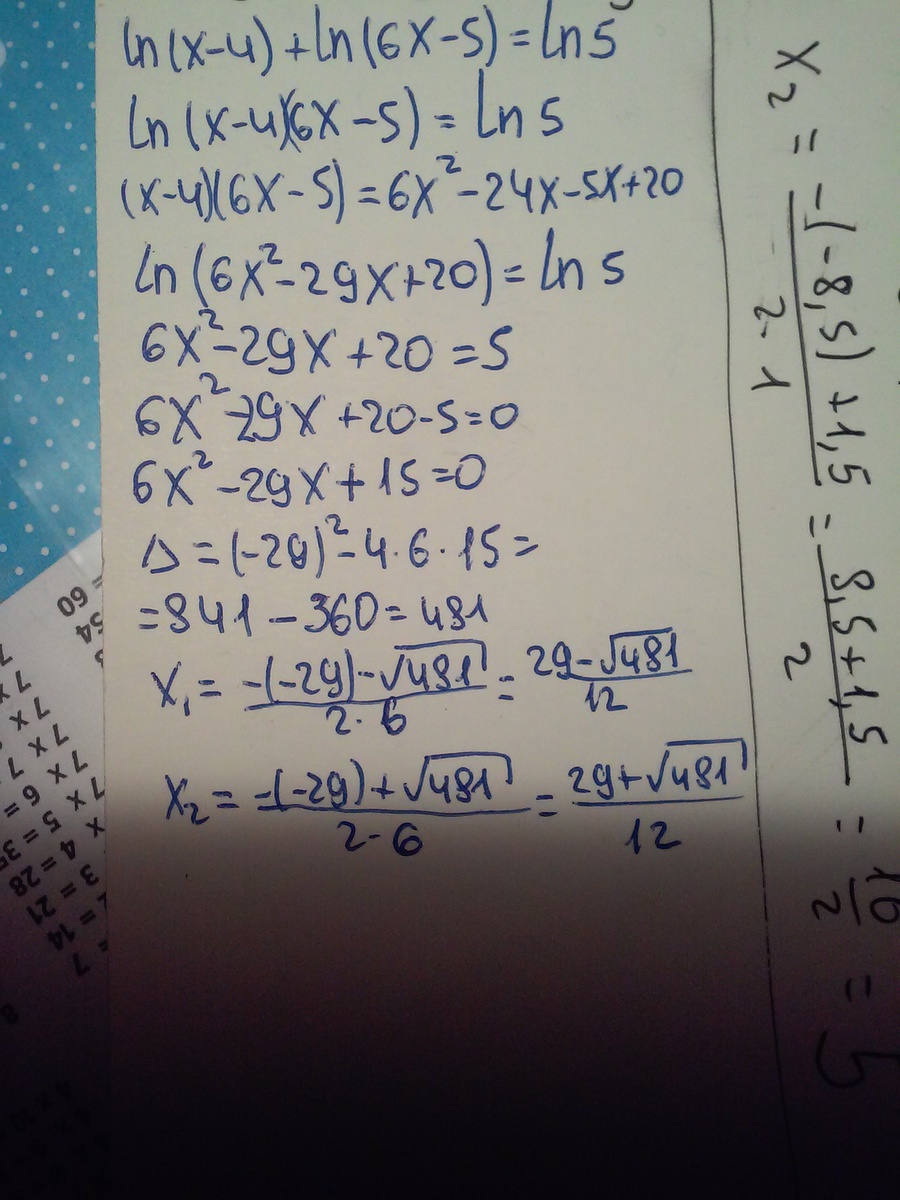 ln(x-4)+ln(6x-5)=ln5
ln(x-4)(6x-5)=ln5
(x-4)(6x-5)=6x²-24x-5x+20
ln(6x²-29x+20)=ln5
6x²-29x+20=5
6x²-29x+20-5=0
6x²-29x+15=0
Δ=(-29)²-4·6·15=
=841-360=481
x₁=\frac{-(-29)-√481}{2·6}=\frac{29-√481}{12}
x₂=\frac{-(-29)+√481}{2·6}=\frac{29+√481}{12}
x₂=\frac{-(-8,5)+1,5}{2·1}=\frac{8,5+1,5}{2}=\frac{10}{2}=5
= 60
54
7 x
7 x
7 x
7 x 6 =
7 x 5 = 35
x 4 = 28
3 = 21
= 14
= 7
8